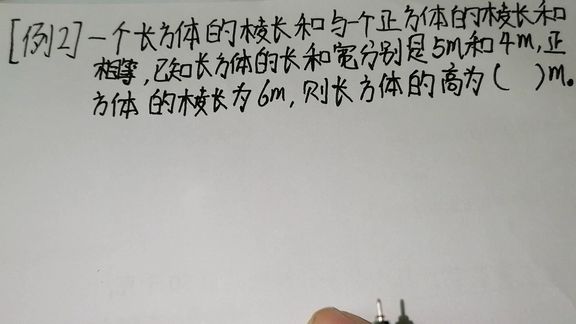 [例2]一个长方体的棱长和与一个正方体的棱长和
相等,已知长方体的长和宽分别是5m和4m,正
方体的棱长为6m,则长方体的高为( )m。